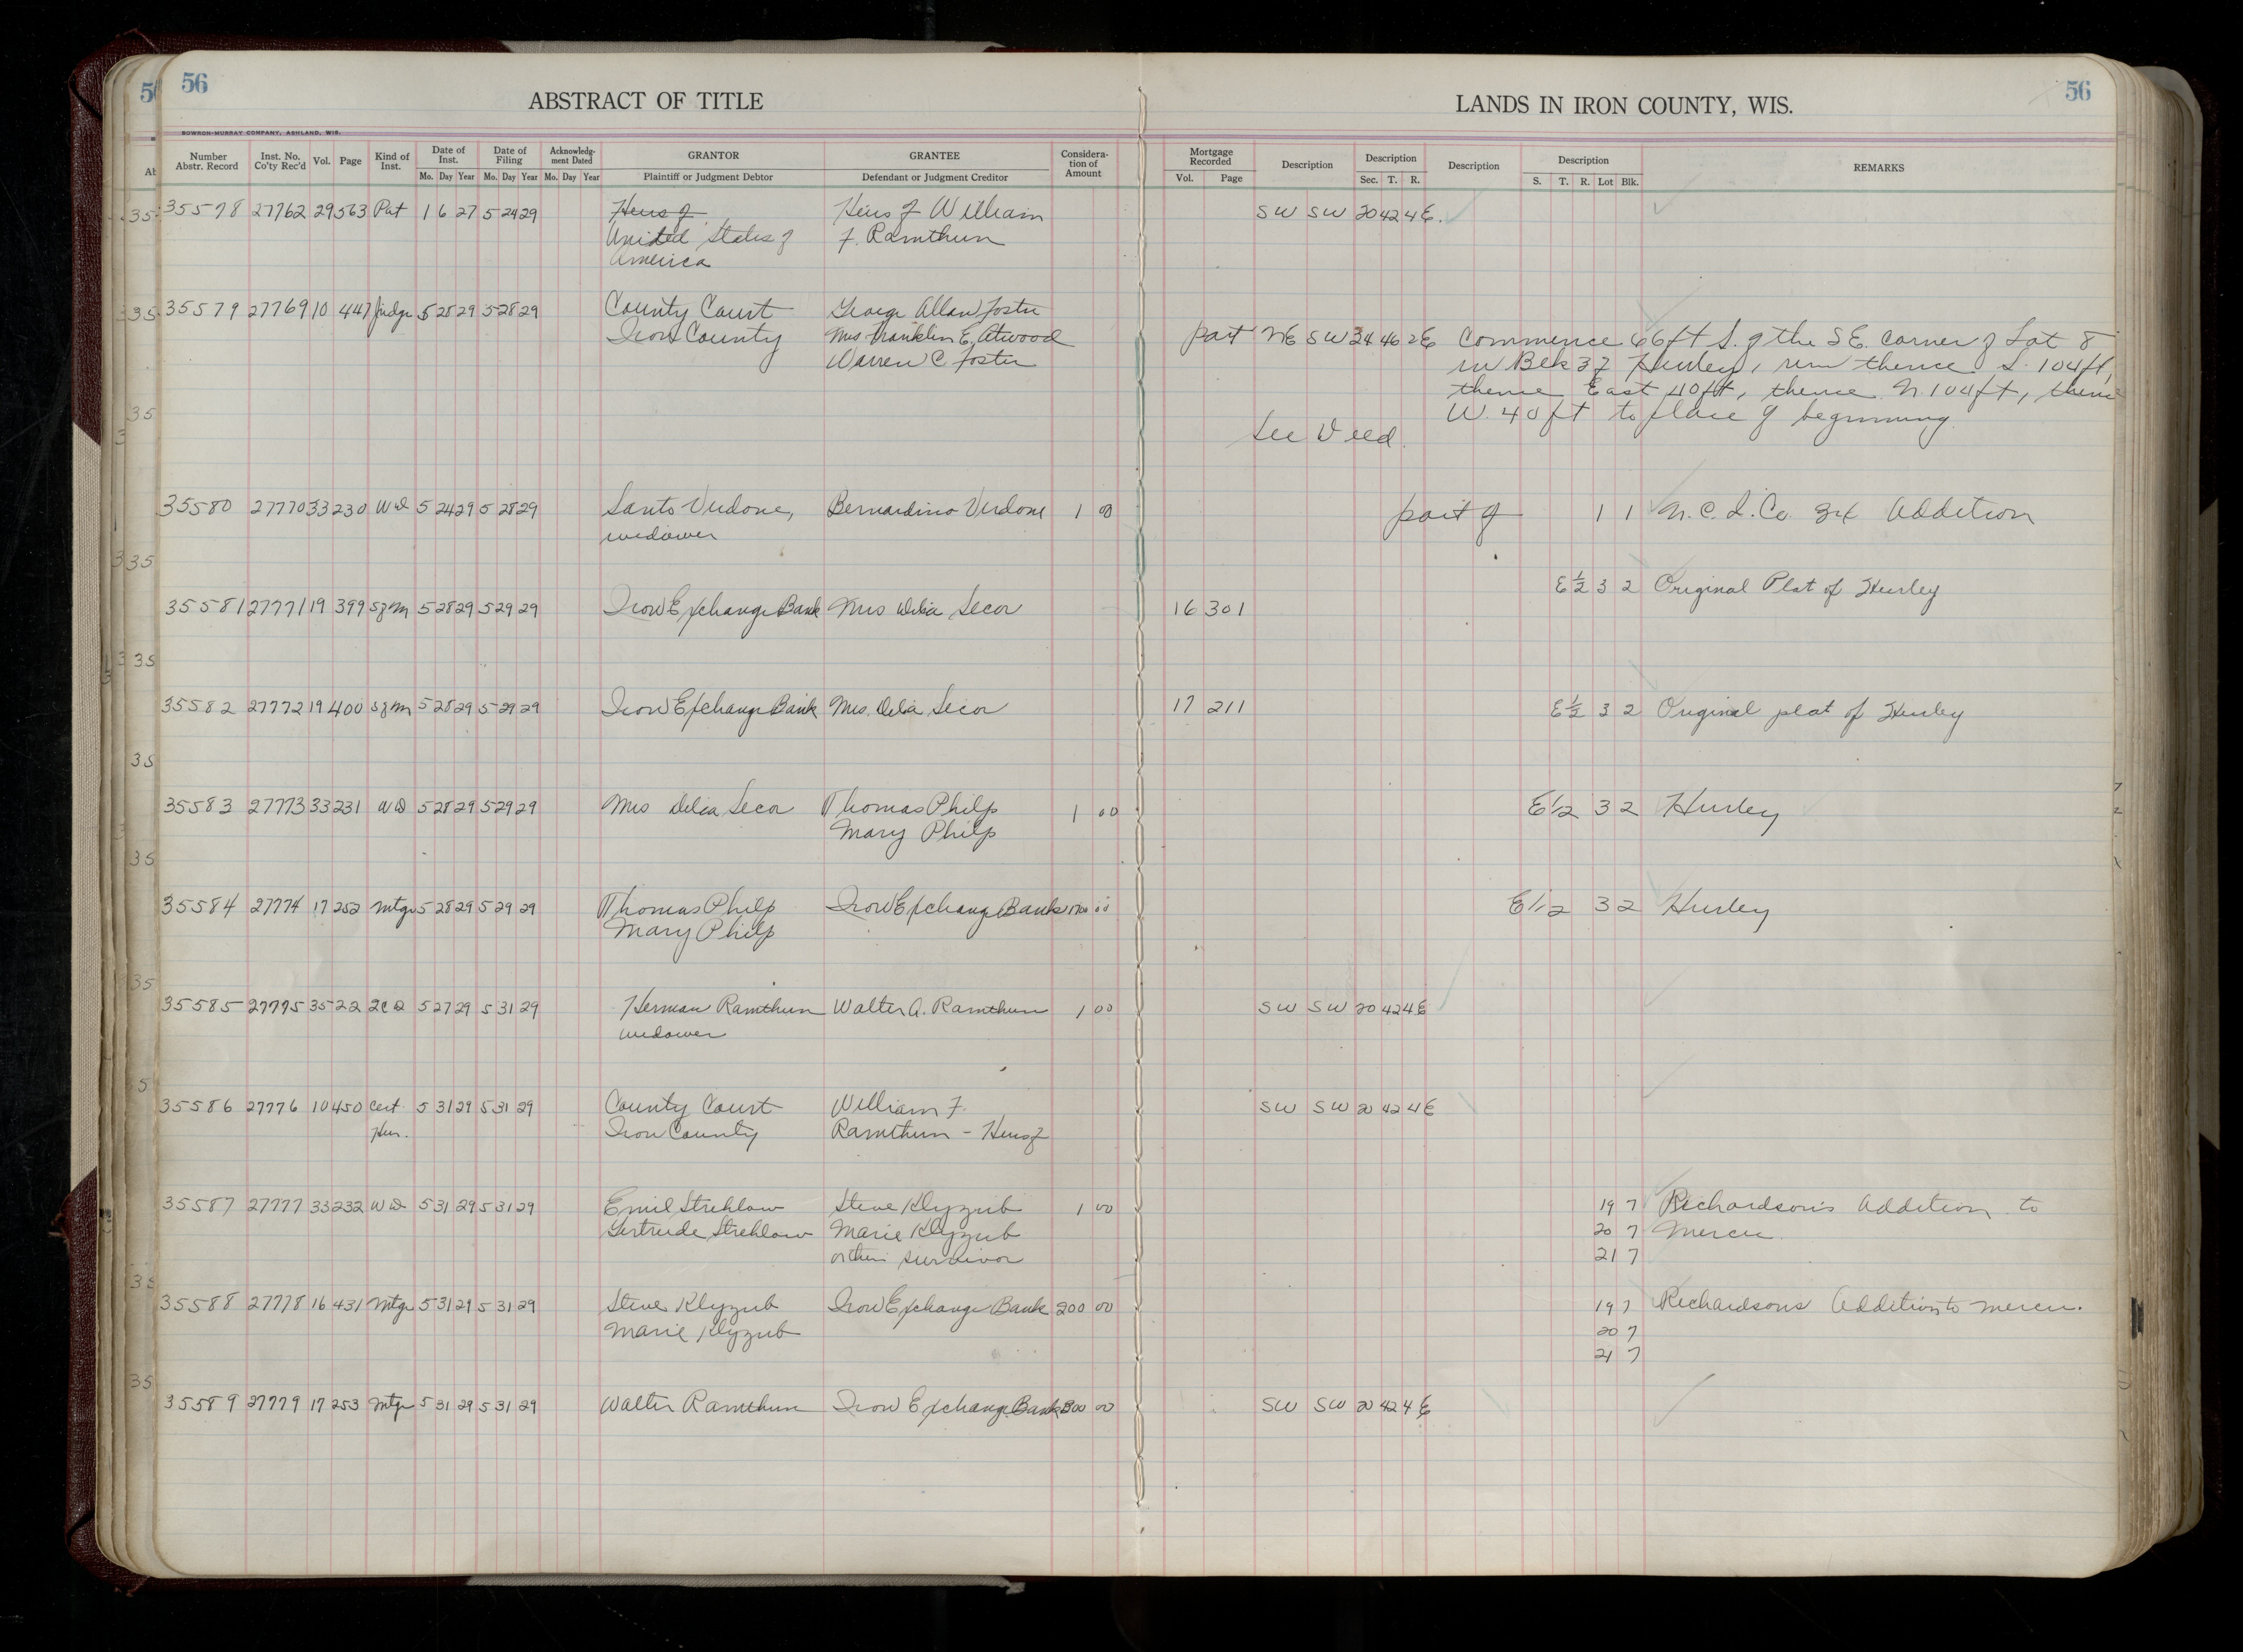 56
56
ABSTRACT OF TITLE
LANDS IN IRON COUNTY, WIS.
BOWRON-MURRAY COMPANY, ASHLAND, WIS.
Number Abstr. Record Inst. No. Co'ty Rec'd Vol. Page Kind of Inst. Date of Inst. Mo. Day Year Date of Filing Mo. Day Year Acknowledgment Dated Mo. Day Year GRANTOR Plaintiff or Judgment Debtor GRANTEE Defendant or Judgment Creditor Consideration of Amount Mortgage Recorded Vol. Page Description Description Sec. T. R. Description Description S. T. R. Lot Blk. REMARKS
35578 27762 29 563 Pat 1 6 27 5 24 29 Heirs of Heirs of William SW SW 20 42 4E.
United States of F. Ramthun
America
35579 27769 10 447 Judge 5 28 29 5 28 29 County Court George Allan Foster
Iron County Mrs Franklin E. Atwood part NE SW 24 46 2E Commence 66 ft S. of the SE. corner of Lot 8
Warren C. Foster in Blk 37 Hurley, run thence S. 104 ft,
thence East 40 ft, thence N. 104 ft, thence
W. 40 ft to place of beginning
See Deed.
35580 27770 33 230 WD 5 24 29 5 28 29 Santo Verdone, Bernardino Verdone 1 00 part of 1 1 N.C.I.Co. 3rd Addition
widower
E 1/2 3 2 Original Plat of Hurley
35581 27771 19 399 SfM 5 28 29 5 29 29 Iron Exchange Bank Mrs Delia Secor 16 301
35582 27772 19 400 SfM 5 28 29 5 29 29 Iron Exchange Bank Mrs. Delia Secor 17 211 E 1/2 3 2 Original plat of Hurley
35583 27773 33 231 WD 5 28 29 5 29 29 Mrs Delia Secor Thomas Philp 1 00 E 1/2 3 2 Hurley
Mary Philp
35584 27774 17 252 Mtge 5 28 29 5 29 29 Thomas Philp Iron Exchange Bank 00 E 1/2 3 2 Hurley
Mary Philp
35585 27775 35 22 2CD 5 27 29 5 31 29 Herman Ramthun Walter A. Ramthun 1 00 SW SW 20 42 4E
widower
35586 27776 10 450 Cert 5 31 29 5 31 29 County Court William F. SW SW 20 42 4E
Her. Iron County Ramthun - Heirs of
35587 27777 33 232 WD 5 31 29 5 31 29 Emil Strehlow Steve Klyzub 1 00 19 7 Richardson's Addition to
Gertrude Strehlow Marie Klyzub 20 7 Mercer
or their survivor 21 7
35588 27778 16 431 Mtge 5 31 29 5 31 29 Steve Klyzub Iron Exchange Bank 200 00 19 7 Richardsons Addition to Mercer.
Marie Klyzub 20 7
21 7
35589 27779 17 253 Mtge 5 31 29 5 31 29 Walter Ramthun Iron Exchange Bank 300 00 SW SW 20 42 4E